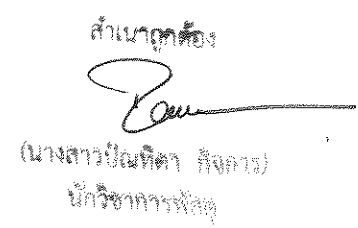 สำเนาถูกต้อง
(นางสาวปัณฑิตา กิจการ)
นักวิชาการพัสดุ